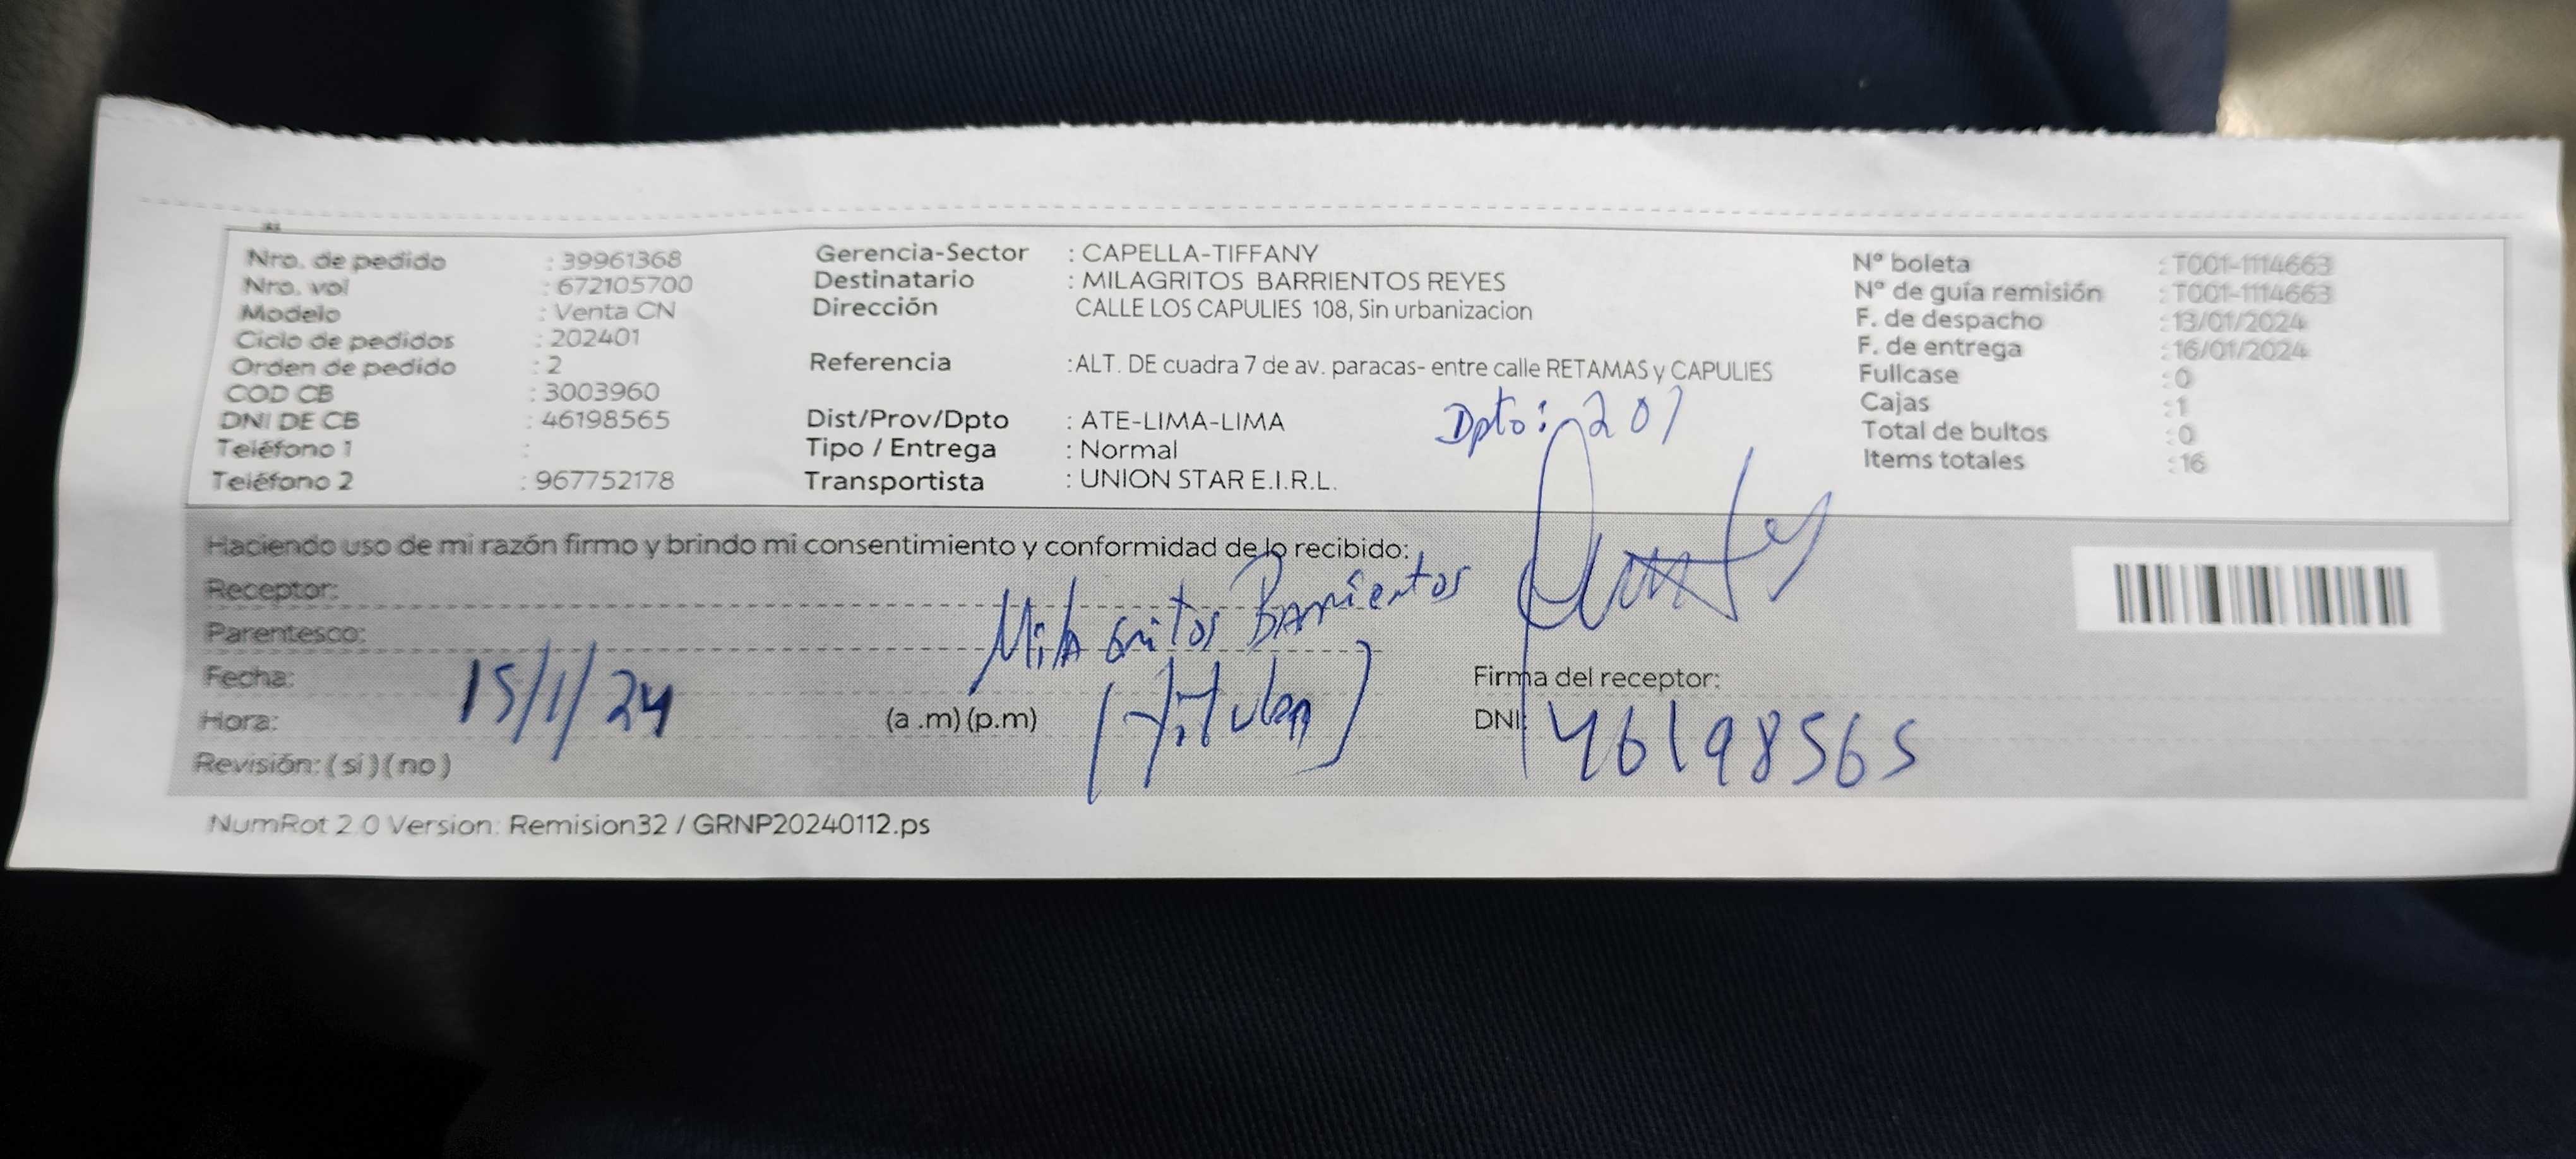 Nro. de pedido : 39961368
Nro. vol : 672105700
Modelo : Venta CN
Ciclo de pedidos : 202401
Orden de pedido : 2
COD CB : 3003960
DNI DE CB : 46198565
Teléfono 1 :
Teléfono 2 : 967752178
Gerencia-Sector : CAPELLA-TIFFANY
Destinatario : MILAGRITOS BARRIENTOS REYES
Dirección CALLE LOS CAPULIES 108, Sin urbanizacion
Referencia :ALT. DE cuadra 7 de av. paracas- entre calle RETAMAS y CAPULIES
Dist/Prov/Dpto : ATE-LIMA-LIMA
Tipo / Entrega : Normal
Transportista : UNION STAR E.I.R.L.
Dpto: 207
N° boleta : T001-1114663
N° de guía remisión : T001-1114663
F. de despacho : 13/01/2024
F. de entrega : 16/01/2024
Fullcase : 0
Cajas : 1
Total de bultos : 0
Items totales : 16
Haciendo uso de mi razón firmo y brindo mi consentimiento y conformidad de lo recibido:
Receptor:
Milagritos Barrientos
Parentesco:
(Titular)
Fecha: 15/1/24
Hora: (a .m) (p.m)
Revisión: ( si ) ( no )
Firma del receptor:
DNI: 46198565
NumRot 2.0 Version: Remision32 / GRNP20240112.ps